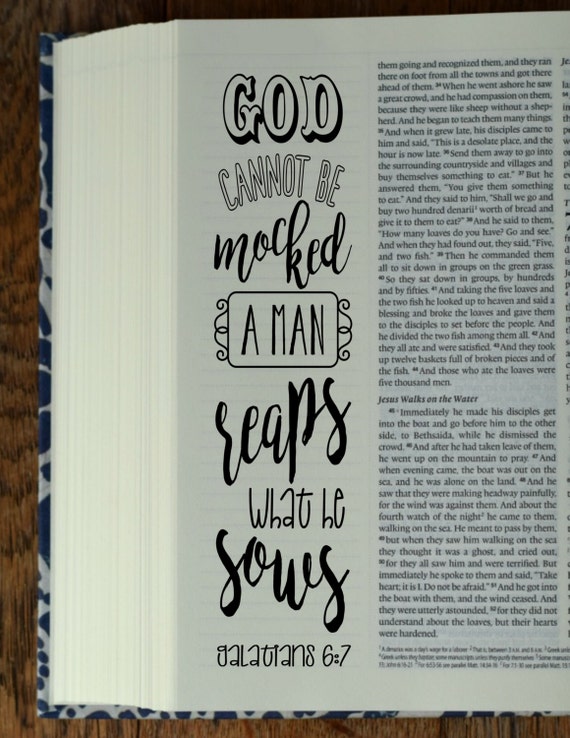 GOD
CANNOT BE
mocked
A MAN
REAPS
what he
SOWS
galatians 6:7
them going and recognized them, and they ran
there on foot from all the towns and got there
ahead of them. 34 When he went ashore he saw
a great crowd, and he had compassion on them,
because they were like sheep without a shep-
herd. And he began to teach them many things.
35 And when it grew late, his disciples came to
him and said, “This is a desolate place, and the
hour is now late. 36 Send them away to go into
the surrounding countryside and villages and
buy themselves something to eat.” 37 But he
answered them, “You give them something
to eat.” And they said to him, “Shall we go and
buy two hundred denarii¹ worth of bread and
give it to them to eat?” 38 And he said to them,
“How many loaves do you have? Go and see.”
And when they had found out, they said, “Five,
and two fish.” 39 Then he commanded them
all to sit down in groups on the green grass.
40 So they sat down in groups, by hundreds
and by fifties. 41 And taking the five loaves and
the two fish he looked up to heaven and said a
blessing and broke the loaves and gave them
to the disciples to set before the people. And
he divided the two fish among them all. 42 And
they all ate and were satisfied. 43 And they took
up twelve baskets full of broken pieces and of
the fish. 44 And those who ate the loaves were
five thousand men.
Jesus Walks on the Water
45 Immediately he made his disciples get
into the boat and go before him to the other
side, to Bethsaida, while he dismissed the
crowd. 46 And after he had taken leave of them,
he went up on the mountain to pray. 47 And
when evening came, the boat was out on the
sea, and he was alone on the land. 48 And he
saw that they were making headway painfully,
for the wind was against them. And about the
fourth watch of the night² he came to them,
walking on the sea. He meant to pass by them,
49 but when they saw him walking on the sea
they thought it was a ghost, and cried out,
50 for they all saw him and were terrified. But
immediately he spoke to them and said, “Take
heart; it is I. Do not be afraid.” 51 And he got into
the boat with them, and the wind ceased. And
they were utterly astounded, 52 for they did not
understand about the loaves, but their hearts
were hardened.